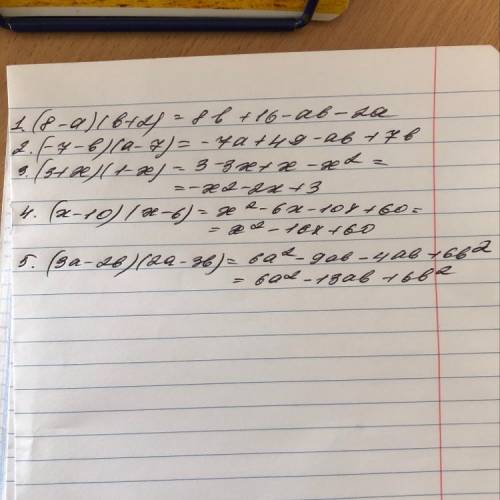 1. (8-a)(b+2) = 8b+16-ab-2a
2. (-7-b)(a-7) = -7a+49-ab+7b
3. (3+x)(1-x) = 3-3x+x-x² =
= -x²-2x+3
4. (x-10)(x-6) = x²-6x-10x+60 =
= x²-16x+60
5. (3a-2b)(2a-3b) = 6a²-9ab-4ab+6b²
= 6a²-13ab+6b²